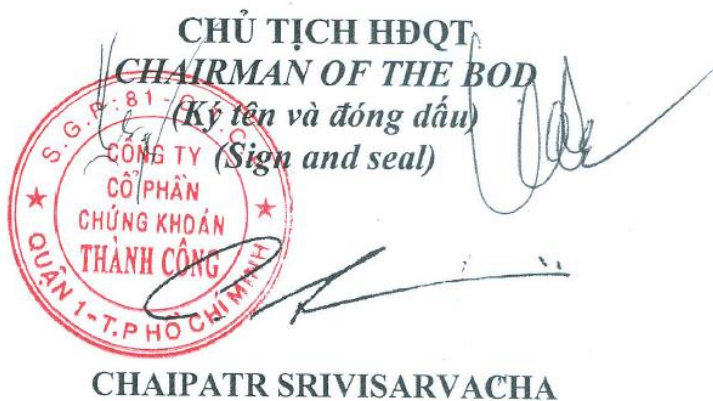 CHỦ TỊCH HĐQT
CHAIRMAN OF THE BOD
(Ký tên và đóng dấu)
(Sign and seal)
CÔNG TY
CỔ PHẦN
CHỨNG KHOÁN
THÀNH CÔNG
QUẬN 1-T.P HỒ CHÍ MINH
CHAIPATR SRIVISARVACHA